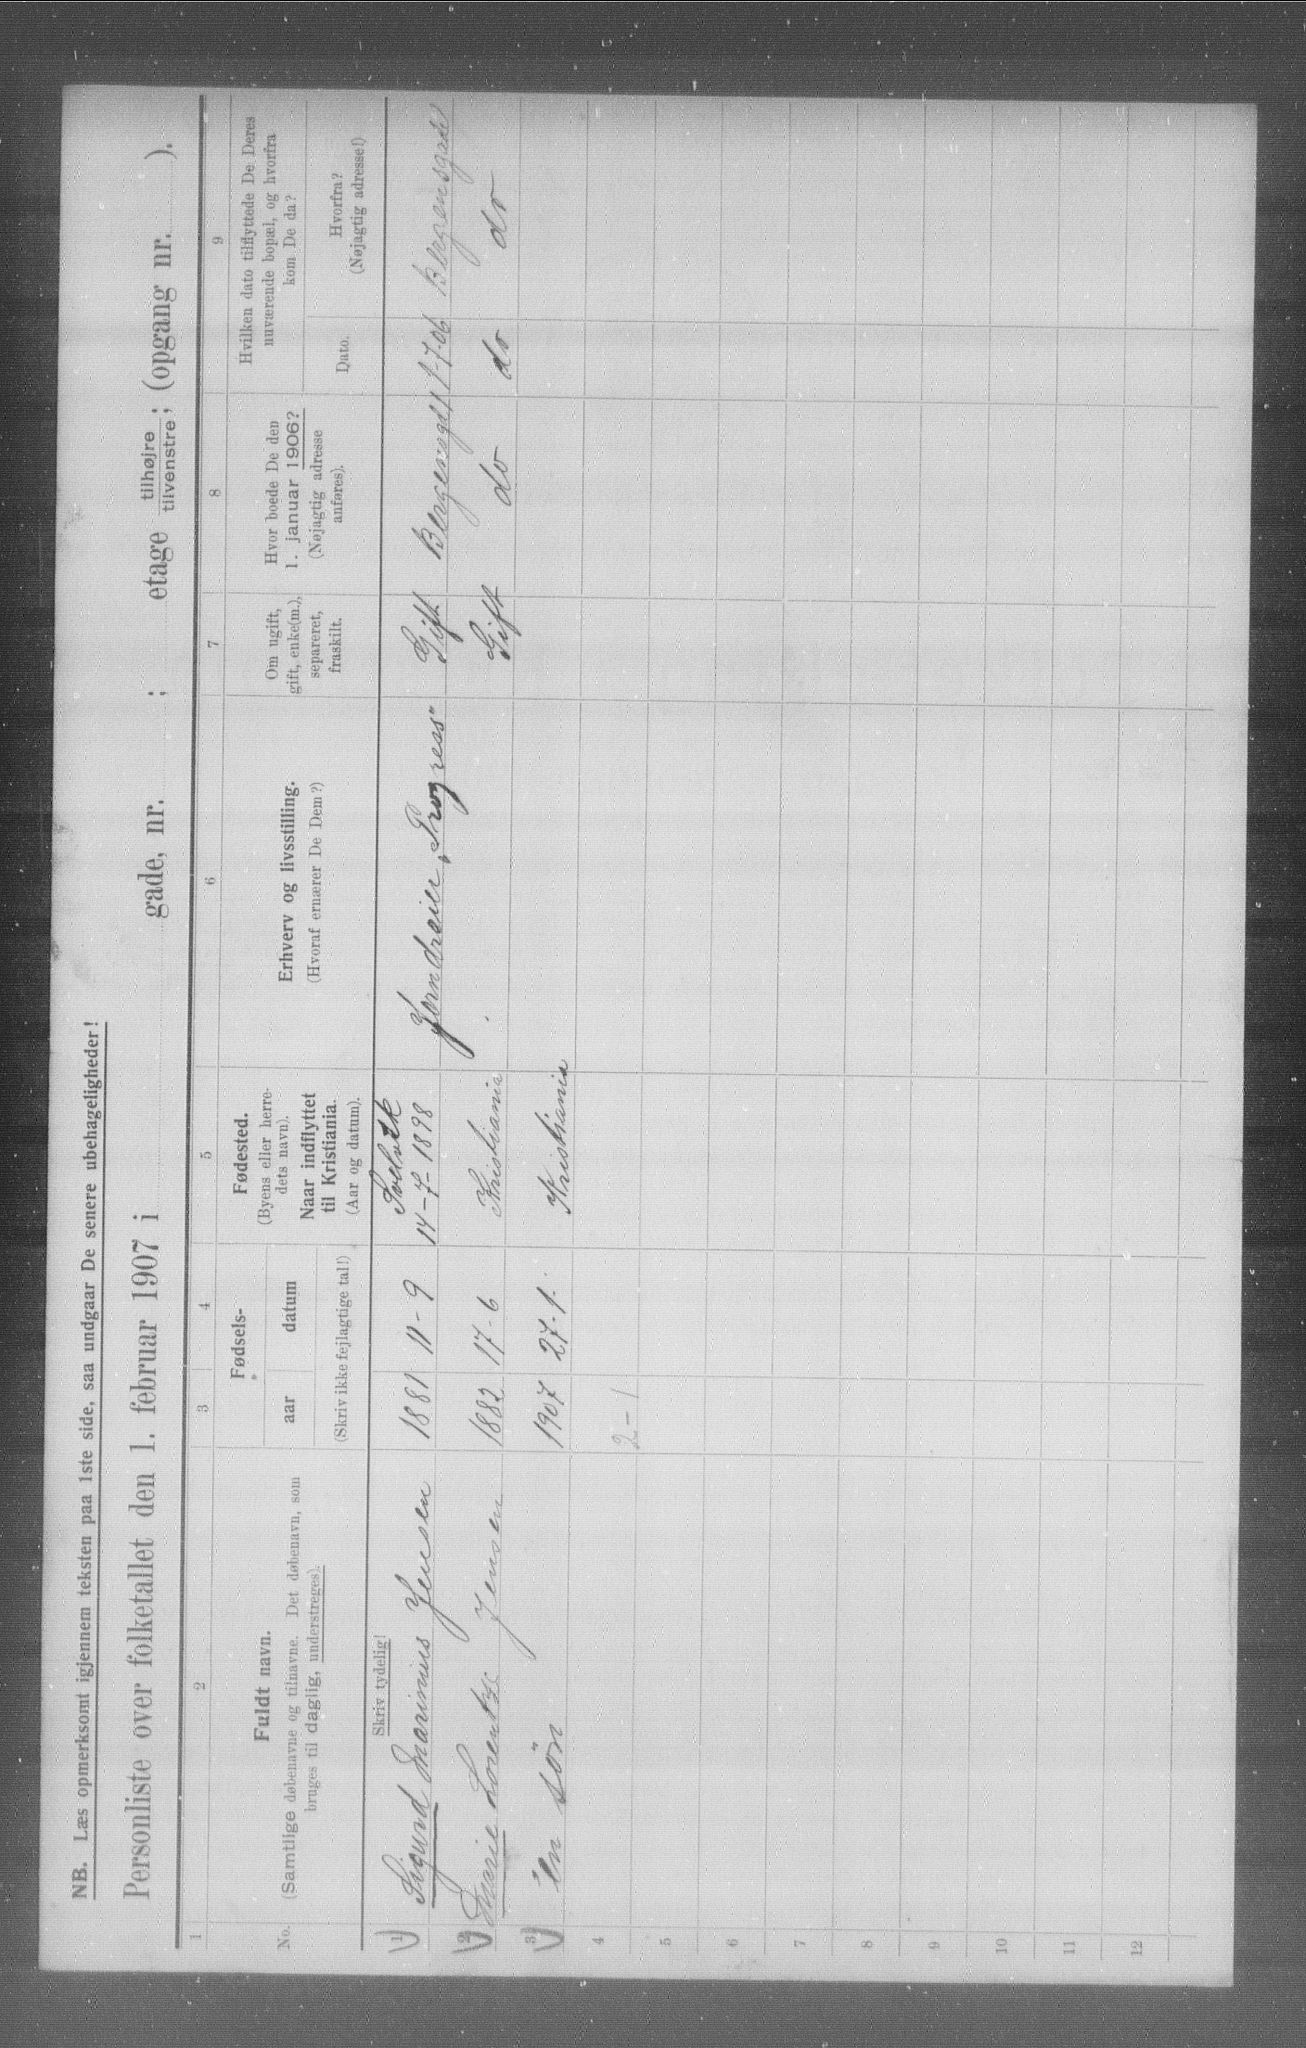 NB. Læs opmerksomt igjennem teksten paa 1ste side, saa undgaar De senere ubehageligheder!
Personliste over folketallet den 1. februar 1907 i gade, nr. ; etage tilhøjre tilvenstre; (opgang nr. ).
1 2 3 4 5 6 7 8 9
No.
Fuldt navn.
(Samtlige døbenavne og tilnavne. Det døbenavn, som
bruges til daglig, understreges).
Skriv tydelig!
Fødsels-
aar datum
(Skriv ikke fejlagtige tal!)
Fødested.
(Byens eller herre-
dets navn).
Naar indflyttet
til Kristiania.
(Aar og datum).
Erhverv og livsstilling.
(Hvoraf ernærer De Dem?)
Om ugift,
gift, enke(m.),
separeret,
fraskilt.
Hvor boede De den
1. januar 1906?
(Nøjagtig adresse
anføres).
Hvilken dato tilflyttede De Deres
nuværende bopæl, og hvorfra
kom De da?
Dato.
Hvorfra?
(Nøjagtig adresse!)
1 Sigurd Marinius Jensen 1881 11-9 14-7-1898 Jerndreier „Progress" Gift Bergensgd 1-7-06 Bergensgade
2 Marie Lorentze Jensen 1882 17-6 Kristiania Gift do do do
3 en søn 1907 27-1- Kristiania
4 2-1
5
6
7
8
9
10
11
12